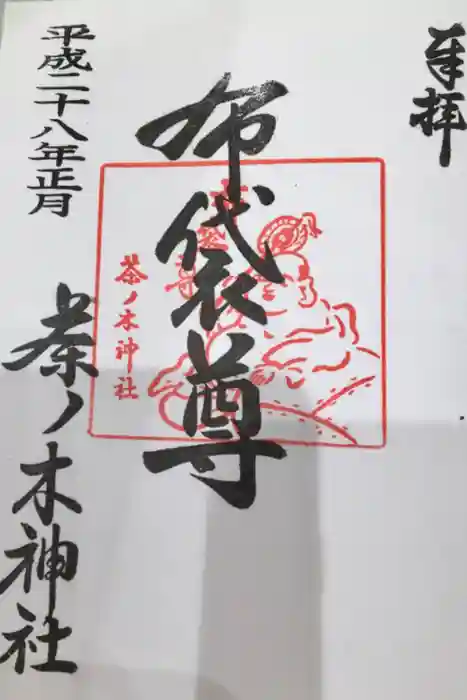 奉拝
布袋尊
茶ノ木神社
平成二十八年正月
茶ノ木神社